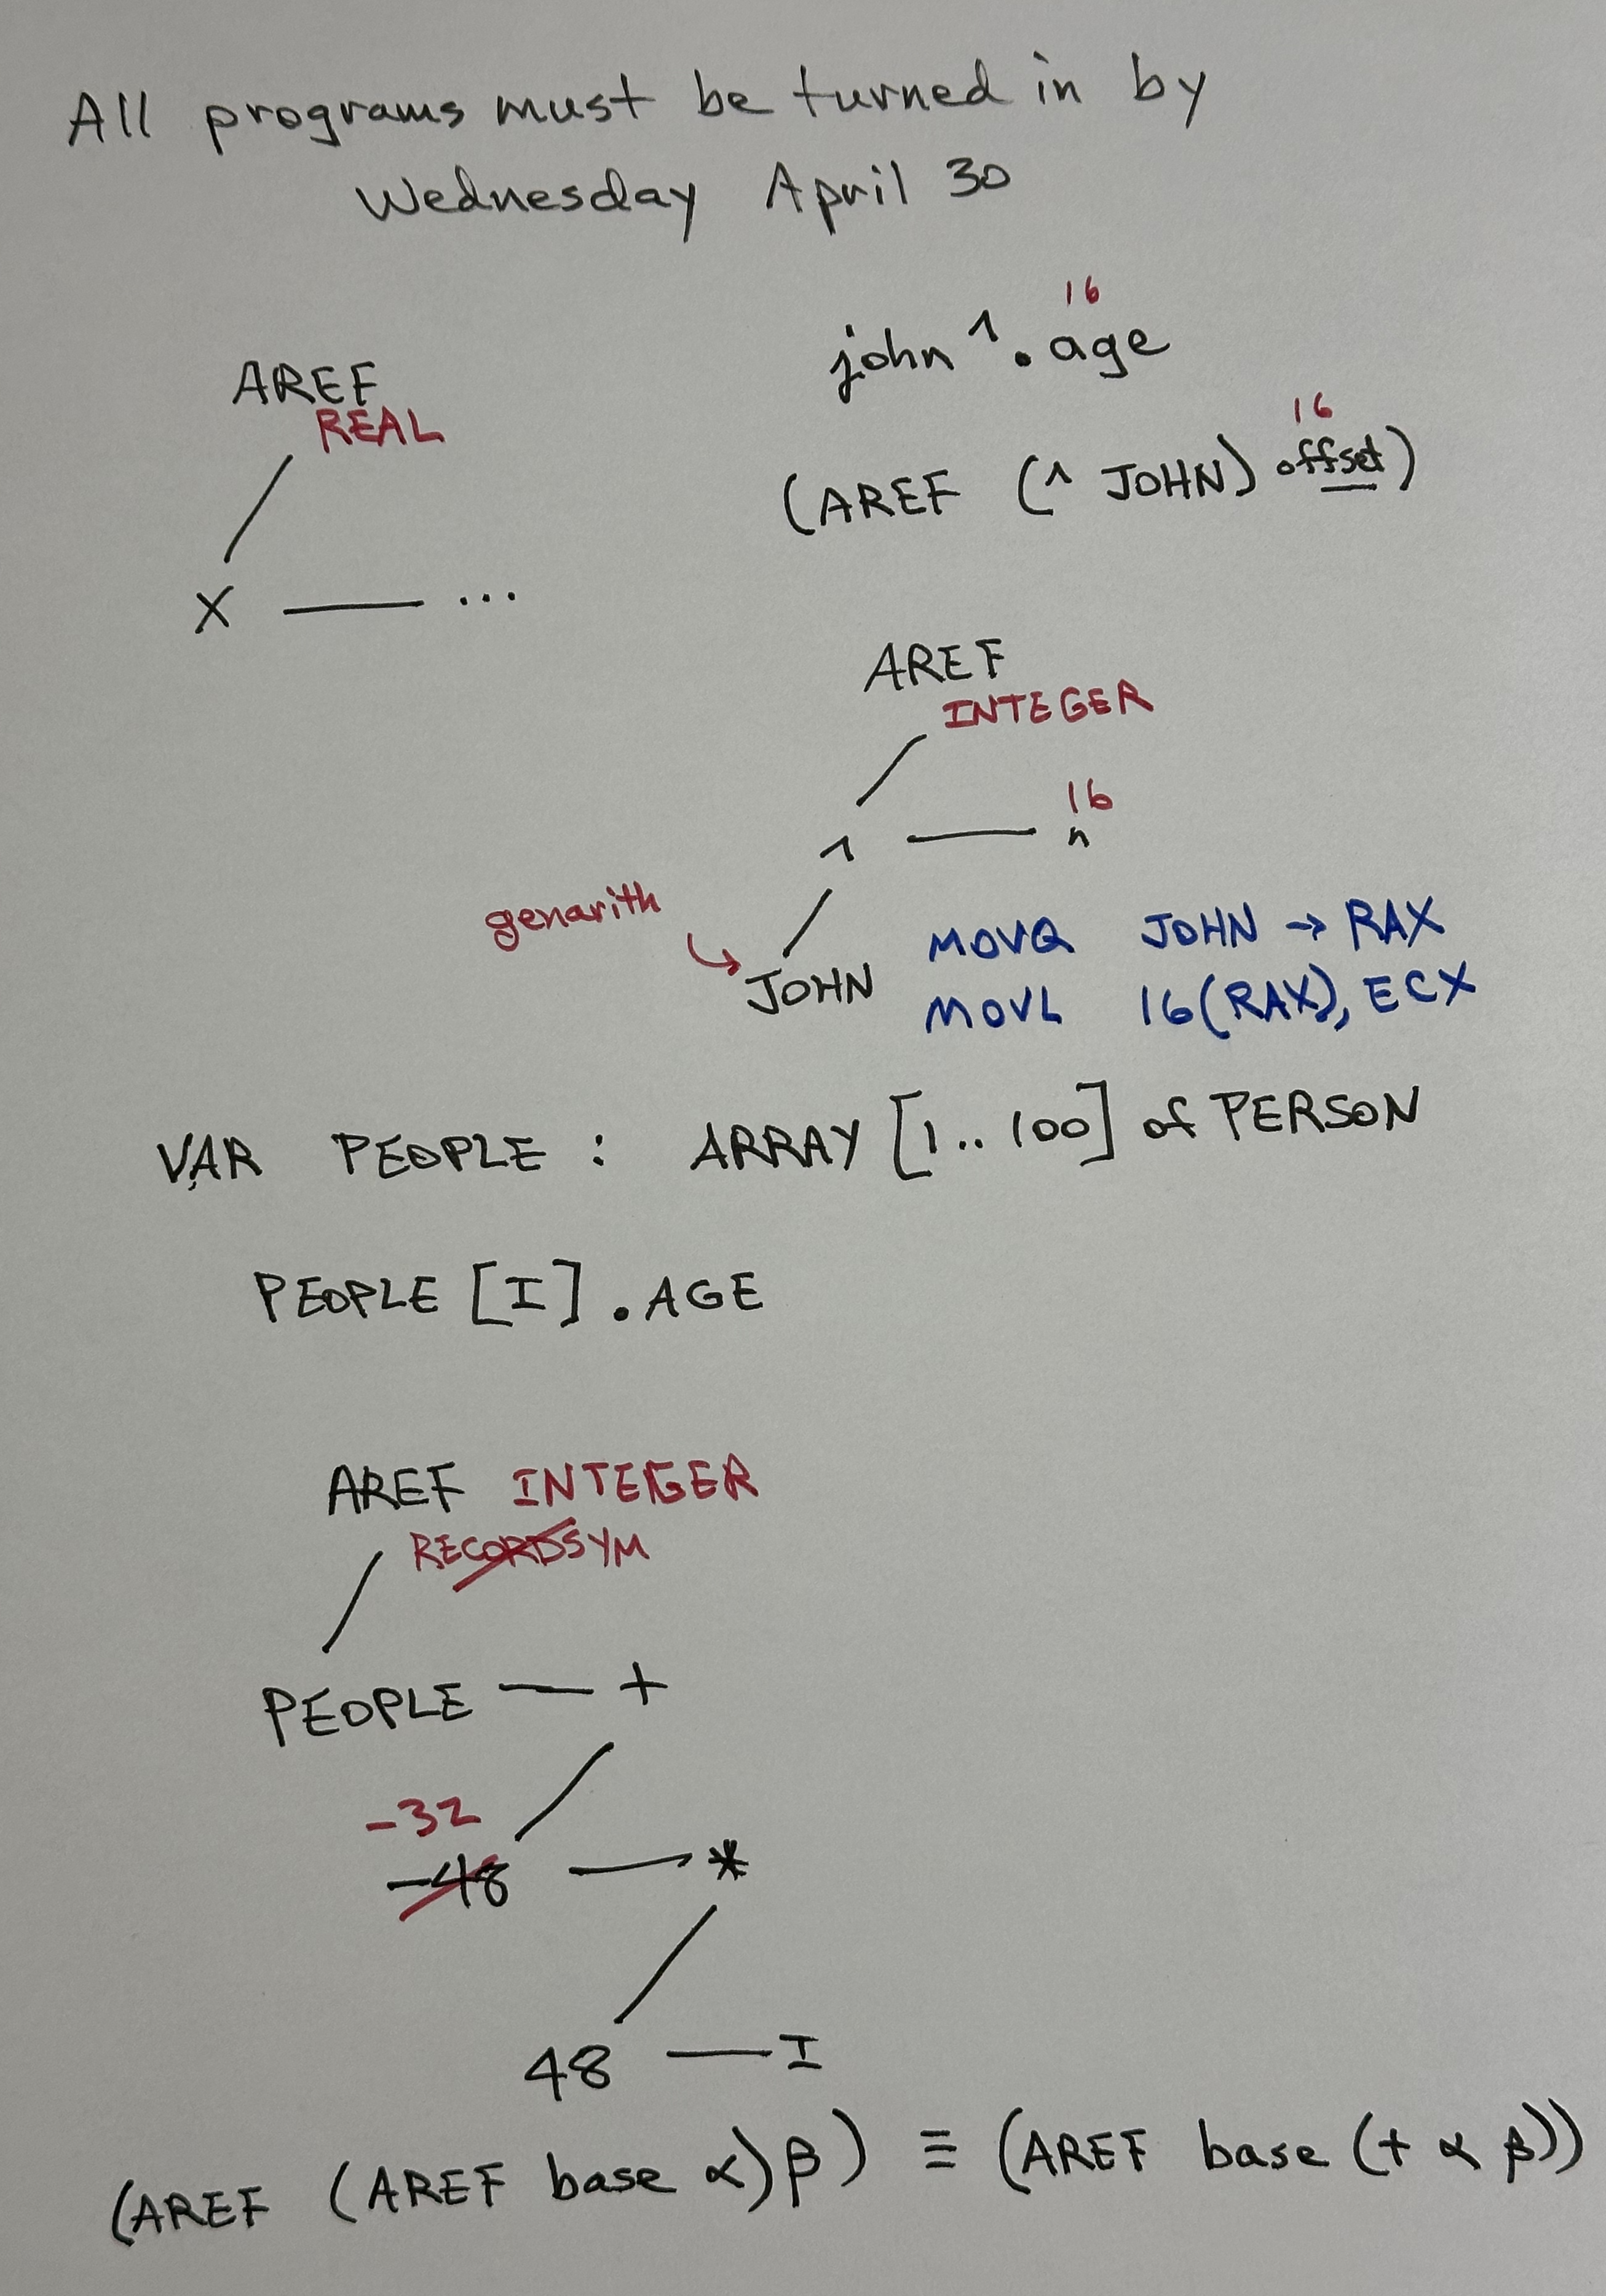 All programs must be turned in by
Wednesday April 30
16
john ^. age
AREF
REAL
16
(AREF (^ JOHN) offset)
X ...
AREF
INTEGER
16
^ n
genarith
JOHN
MOVQ JOHN → RAX
MOVL 16(RAX), ECX
VAR PEOPLE : ARRAY [1..100] of PERSON
PEOPLE [I] . AGE
AREF INTEGER
RECORDSYM
PEOPLE — +
-32
-48 *
48 — I
(AREF (AREF base α) β) ≡ (AREF base (+ α β))